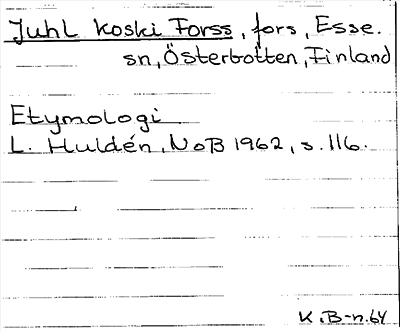 Juhl Koski Forss, fors, Esse.
sn, Österbotten, Finland
Etymologi
L. Huldén, NoB 1962, s. 116.
K.B-n.64